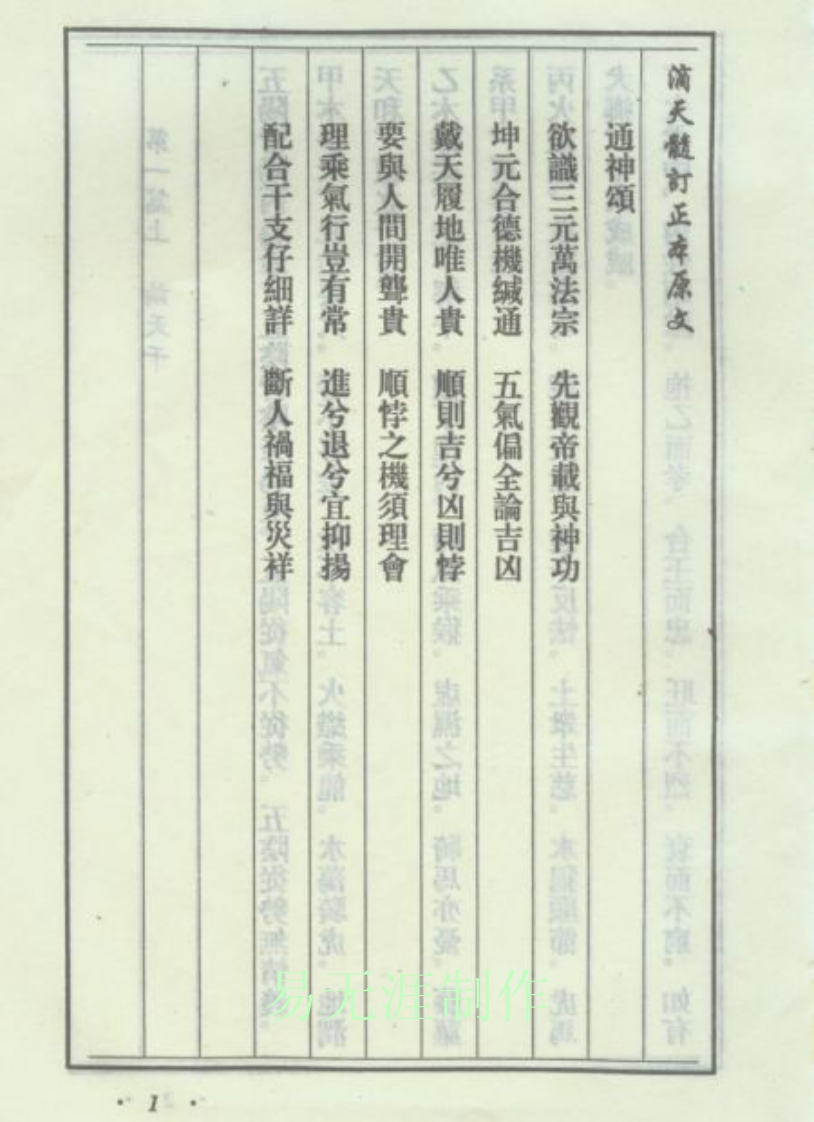 滴天髓訂正本原文
通神頌
欲識三元萬法宗　先觀帝載與神功
坤元合德機緘通　五氣偏全論吉凶
戴天履地唯人貴　順則吉兮凶則悖
要與人間開聾貴　順悖之機須理會
理乘氣行豈有常　進兮退兮宜抑揚
配合干支仔細詳　斷人禍福與災祥
易无涯制作
· 1 ·